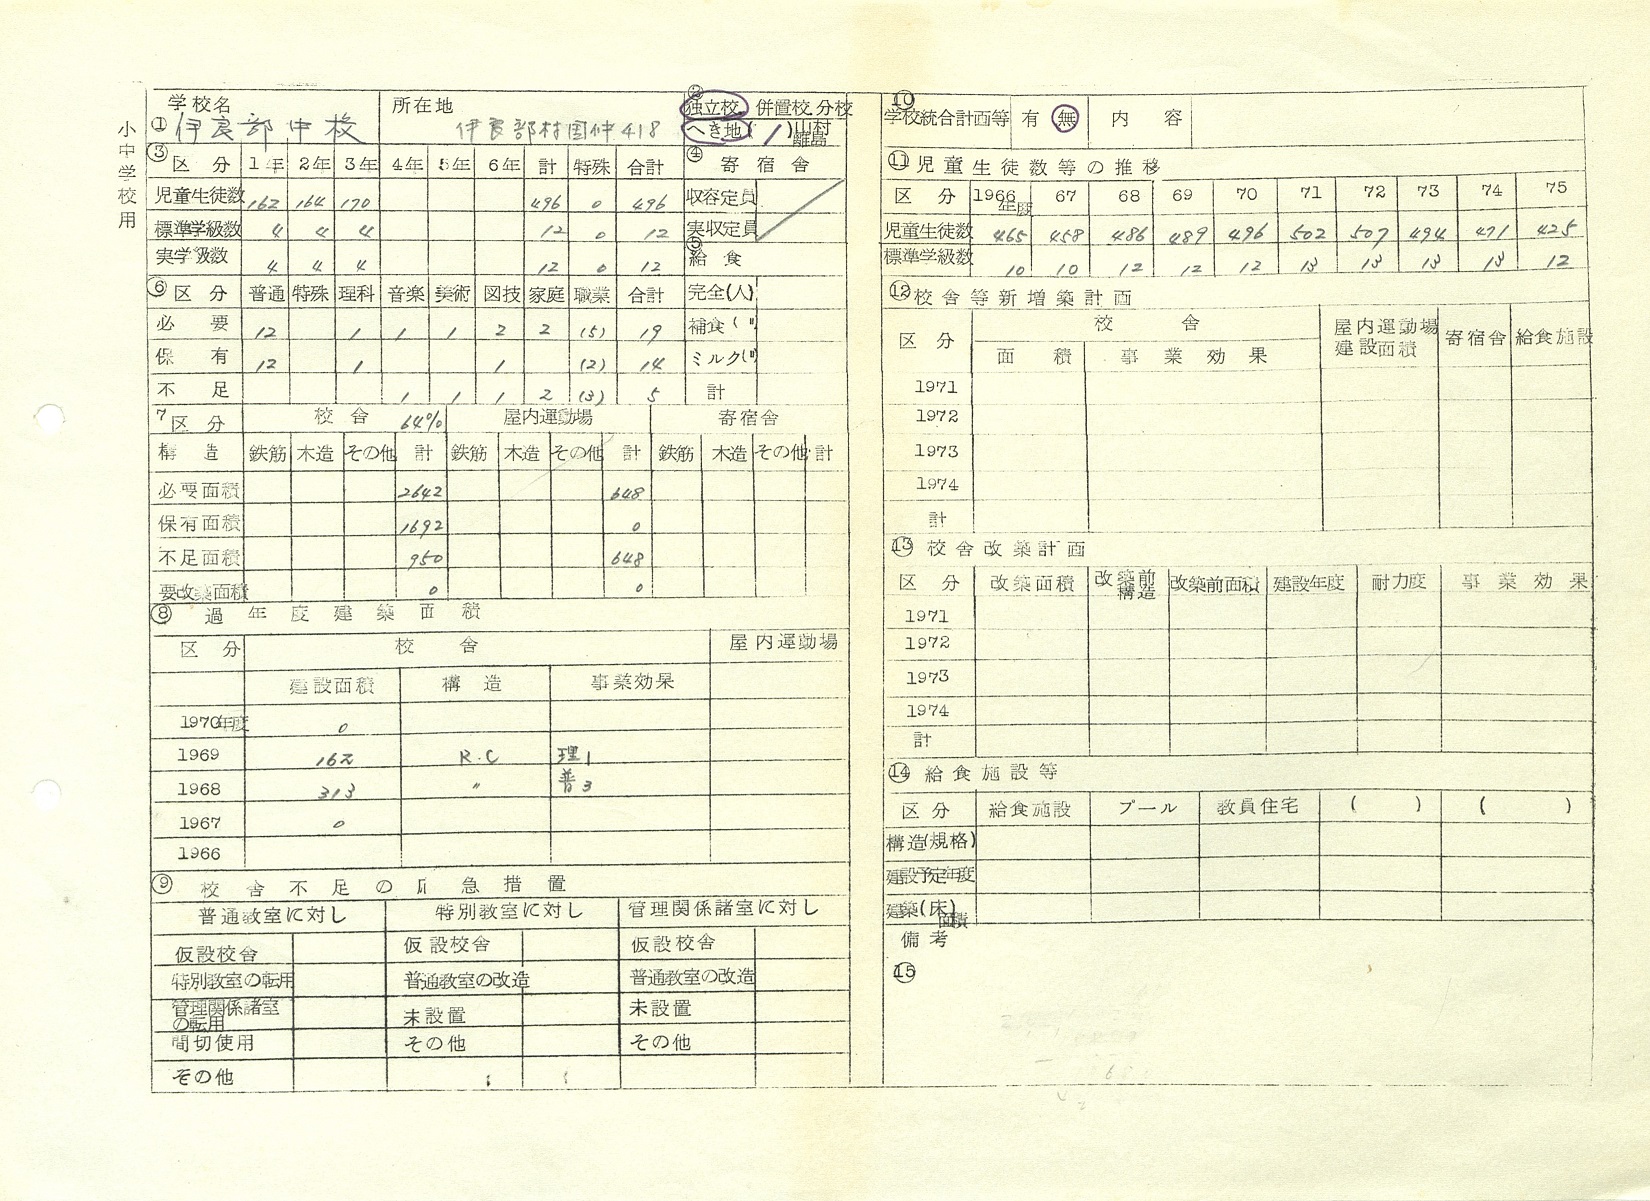 小中学校用
① 学校名 伊良部中校
所在地 伊良部村国仲418
② 独立校. 併置校. 分校
へき地(1) 山村 離島
③ 区分 1年 2年 3年 4年 5年 6年 計 特殊 合計
児童生徒数 162 164 170 496 0 496
標準学級数 4 4 4 12 0 12
実学級数 4 4 4 12 0 12
④ 寄宿舎
収容定員
実収定員
⑤ 給食
完全(人)
補食(〃)
ミルク(〃)
計
⑥ 区分 普通 特殊 理科 音楽 美術 図技 家庭 職業 合計
必要 12 1 1 1 2 2 (5) 19
保有 12 1 1 (2) 14
不足 1 1 1 2 (3) 5
7 区分 校舎 64% 屋内運動場 寄宿舎
構造 鉄筋 木造 その他 計 鉄筋 木造 その他 計 鉄筋 木造 その他 計
必要面積 2642 648
保有面積 1692 0
不足面積 950 648
要改築面積 0 0
⑧ 過年度建築面積
区分 校舎 屋内運動場
建設面積 構造 事業効果
1970年度 0
1969 162 R.C 理1
1968 313 〃 普3
1967 0
1966
⑨ 校舎不足の応急措置
普通教室に対し 特別教室に対し 管理関係諸室に対し
仮設校舎 仮設校舎 仮設校舎
特別教室の転用 普通教室の改造 普通教室の改造
管理関係諸室の転用 未設置 未設置
間切使用 その他 その他
その他
⑩ 学校統合計画等 有 無 内容
⑪ 児童生徒数等の推移
区分 1966年度 67 68 69 70 71 72 73 74 75
児童生徒数 465 458 486 489 496 502 507 494 471 425
標準学級数 10 10 12 12 12 13 13 13 13 12
⑫ 校舎等新増築計画
区分 校舎 屋内運動場建設面積 寄宿舎 給食施設
面積 事業効果
1971
1972
1973
1974
計
⑬ 校舎改築計画
区分 改築面積 改築前構造 改築前面積 建設年度 耐力度 事業効果
1971
1972
1973
1974
計
⑭ 給食施設等
区分 給食施設 プール 教員住宅 ( ) ( )
構造(規格)
建設予定年度
建築(床)面積
備考
⑮